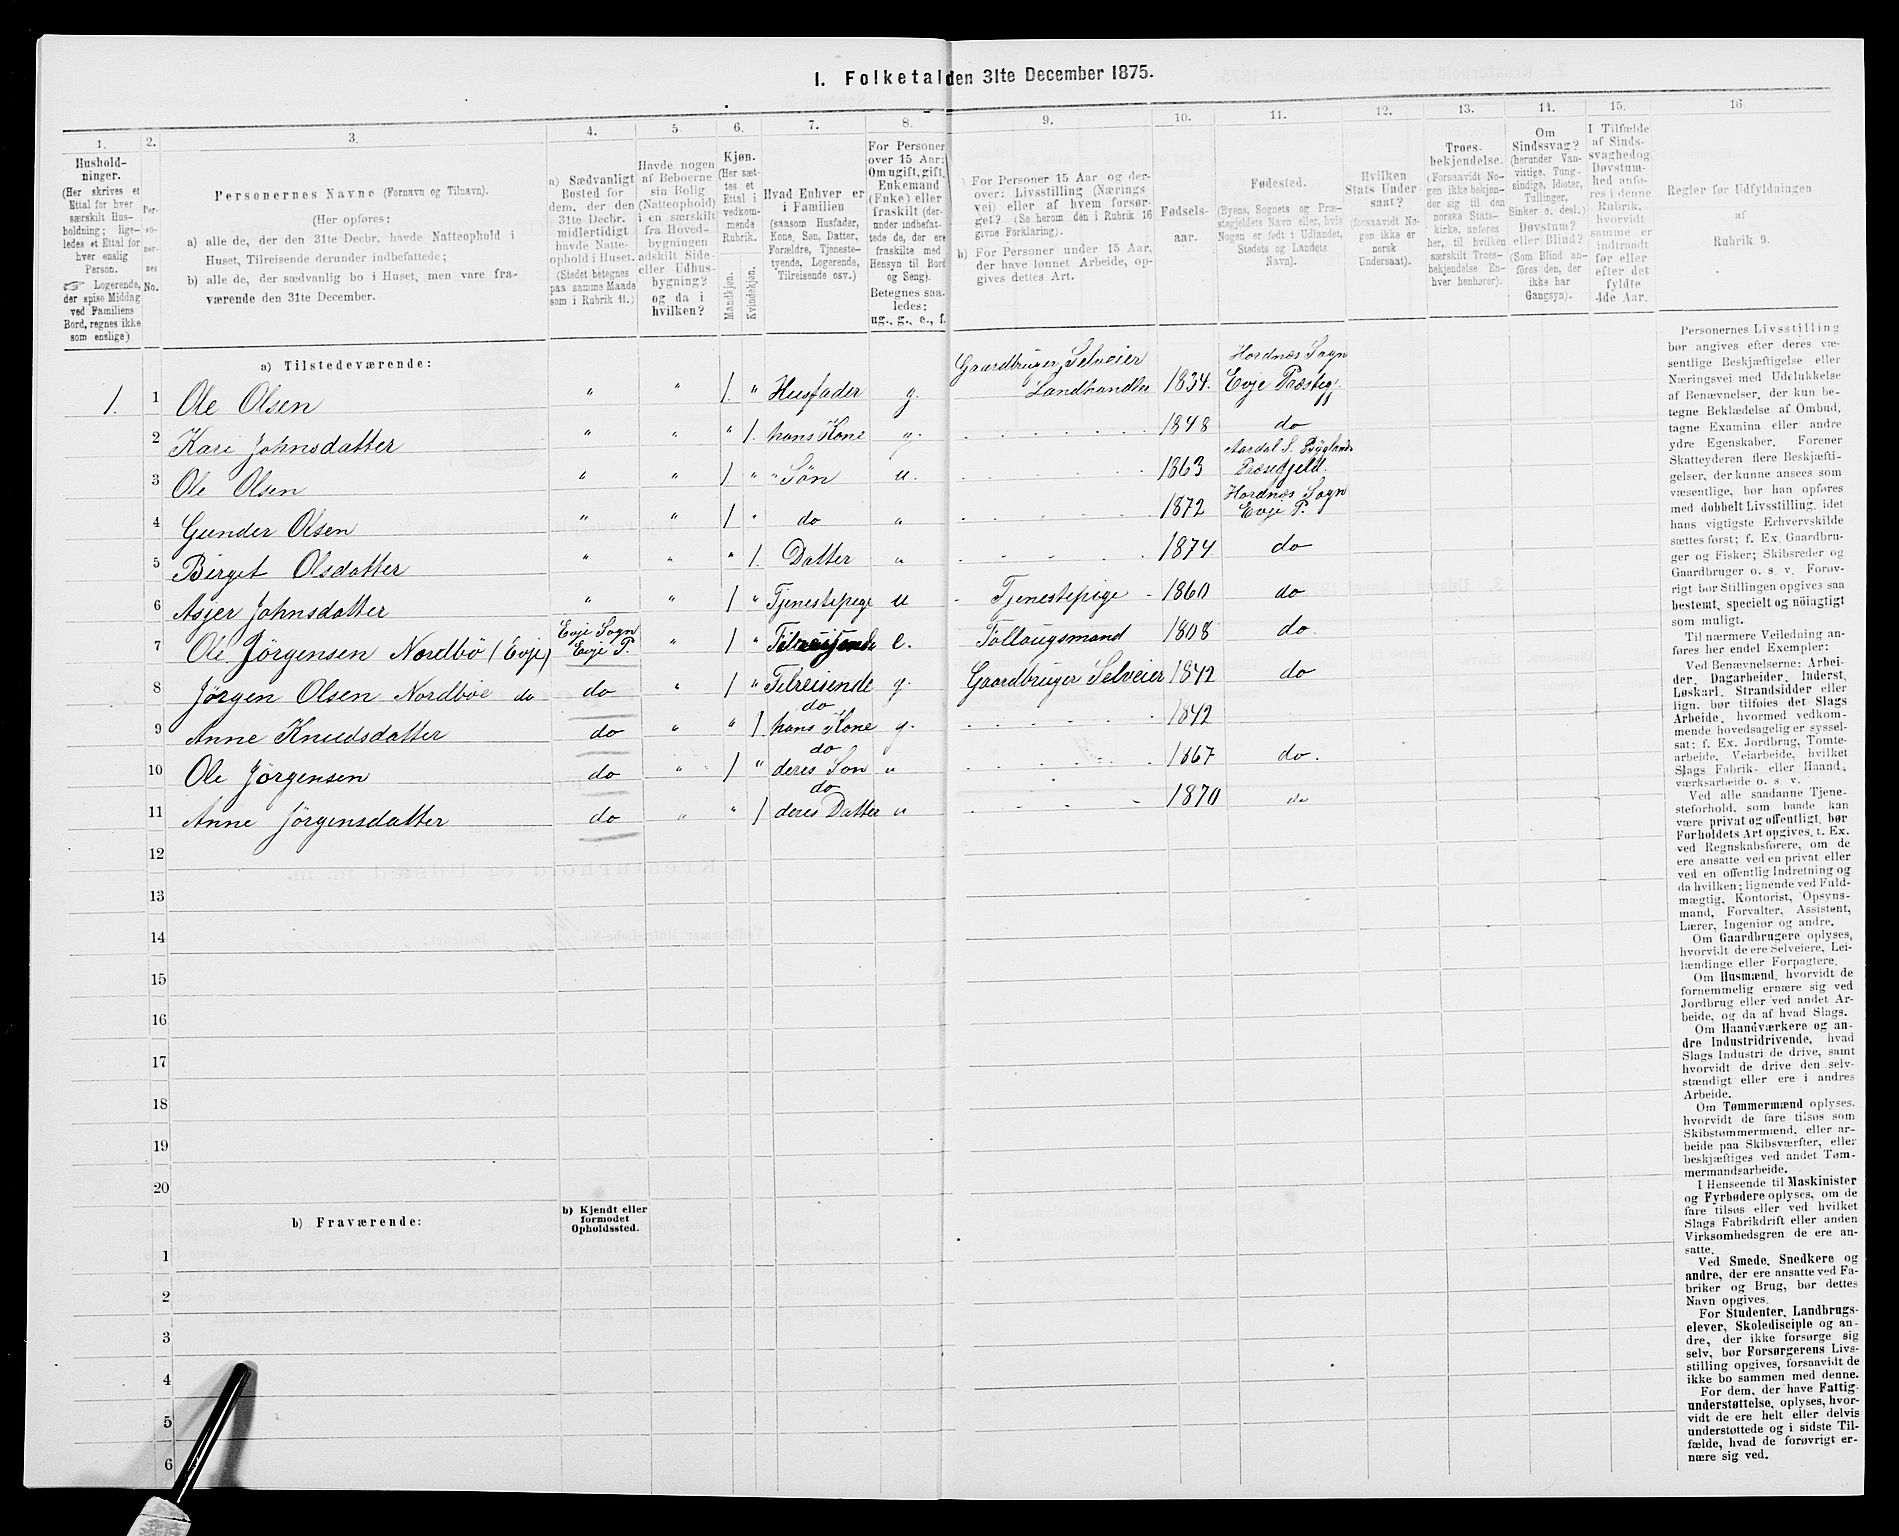 1. Folketal den 31te December 1875.
1.
Hushold-
ninger.
(Her skrives et
Ettal for hver
særskilt Hus-
holdning; lige-
ledes et Ettal for
hver enslig
Person.
☞ Logerende,
der spise Middag
ved Familiens
Bord, regnes ikke
som enslige)
2.
Per-
so-
ner-
nes
No.
3.
Personernes Navne (Fornavn og Tilnavn).
(Her opføres:
a) alle de, der den 31te Decbr. havde Natteophold i
Huset, Tilreisende derunder indbefattede;
b) alle de, der sædvanlig bo i Huset, men vare fra-
værende den 31te December.
4.
a) Sædvanligt
Bosted for
dem, der den
31te Decbr.
midlertidigt
havde Natte-
ophold i Huset.
(Stedet betegnes
paa samme Maade
som i Rubrik 11.)
5.
Havde nogen
af Beboerne
sin Bolig
(Natteophold)
i en særskilt
fra Hoved-
bygningen
adskilt Side-
eller Udhus-
bygning?
og da i
hvilken?
6.
Kjøn.
(Her sæt-
tes et
Ettal i
vedkom-
mende
Rubrik.
Mandkjøn.
Kvindekjøn.
7.
Hvad Enhver er
i Familien
(saasom Husfader,
Kone, Søn, Datter,
Forældre, Tjeneste-
tyende, Logerende,
Tilreisende osv.)
8.
For Personer
over 15 Aar:
Om ugift, gift,
Enkemand
(Enke) eller
fraskilt (der-
under indbefat-
tede de, der ere
fraskilte med
Hensyn til Bord
og Seng).
Betegnes saa-
ledes:
ug., g., e., f.
9.
a) For Personer 15 Aar og der-
over: Livsstilling (Nærings
vei) eller af hvem forsør-
get? (Se herom den i Rubrik 16
givne Forklaring).
b) For Personer under 15 Aar,
der have lønnet Arbeide, op-
gives dettes Art.
10.
Fødsels-
aar.
11.
Fødested.
(Byens, Sognets og Præ-
stegjeldets Navn eller, hvis
Nogen er født i Udlandet,
Stedets og Landets
Navn).
12.
Hvilken
Stats Under-
saat?
(forsaavidt No-
gen ikke er
norsk
Undersaat).
13.
Troes-
bekjendelse.
(Forsaavidt No-
gen ikke bekjen-
der sig til den
norske Stats-
kirke, anføres
her, til hvilken
særskilt Troes-
bekjendelse En-
hver henhører).
14.
Om
Sindssvag?
(herunder Van-
vittige, Tung-
sindige, Idioter,
Tullinger,
Sinker o. desl.)
Døvstum?
eller Blind?
(Som Blind an-
føres den, der
ikke har
Gangsyn).
15.
I Tilfælde
af Sinds-
svaghed og
Døvstum-
hed anfø-
res i denne
Rubrik,
hvorvidt
samme er
indtraadt
før eller
efter det
fyldte
4de Aar.
16
Regler for Udfyldningen
af
Rubrik 9.
a) Tilstedeværende:
1. 1 Ole Olsen " " 1. " Husfader g. Gaardbruger, Selveier Landhandler 1834. Hordnæs Sogn Evje Præsteg.
2 Kari Johnsdatter " " " 1. hans Kone g. 1848 do
3 Ole Olsen " " 1 " " Søn u. 1863 Aardal S. Byglands Præstgjeld.
4 Gunder Olsen " " 1 " do " 1872 Hordnæs Sogn Evje P.
5 Birget Olsdatter " " " 1. Datter " 1874 do
6 Asjer Johnsdatter " " 1 " Tjenestepige u Tjenestepige 1860 do
7 Ole Jørgensen Nordbö (Evje) Evje Sogn Evje P. " 1 " Tilreisende e. Follaugsmand 1808 do.
8 Jørgen Olsen Nordböe do do " 1 " Tilreisende g. Gaardbruger Selveier 1842 do
9 Anne Knudsdatter do " " 1 do hans Kone g. 1842
10 Ole Jørgensen do " 1 " do deres Søn " 1867 do.
11 Anne Jørgensdatter do " " 1 do deres Datter " 1870 do
12
13
14
15
16
17
18
19
20
b) Fraværende:
b) Kjendt eller
formodet
Opholdssted.
1
2
3
4
5
6
Personernes Livsstilling
bør angives efter deres væ-
sentlige Beskjæftigelse eller
Næringsvei med Udelukkelse
af Benævnelser, der kun be-
tegne Beklædelse af Ombud,
tagne Examina eller andre
ydre Egenskaber. Forener
Skatteyderen flere Beskjæfti-
gelser, der kunne ansees som
væsentlige, bør han opføres
med dobbelt Livsstilling, idet
hans vigtigste Erhvervskilde
sættes først; f. Ex. Gaardbru-
ger og Fisker; Skibsreder og
Gaardbruger o. s. v. Forøv-
rigt bør Stillingen opgives saa
bestemt, specielt og nöiagtigt
som muligt.
Til nærmere Veiledning an-
føres her endel Exempler:
Ved Benævnelserne: Arbei-
der, Dagarbeider, Inderst,
Løskarl, Strandsidder eller
lign. bør tilføies det Slags
Arbeide, hvormed vedkom-
mende hovedsagelig er syssel-
sat; f. Ex. Jordbrug, Tomte-
arbeide, Veiarbeide, hvilket
Slags Fabrik- eller Haand-
værksarbeide o. s. v.
Ved alle saadanne Tjene-
steforhold, som baade kan
være privat og offentligt, bør
Forholdets Art opgives, t. Ex.
ved Regnskabsførere, om de
ere ansatte ved en privat eller
ved en offentlig Indretning og
da hvilken; lignende ved Fuld-
mægtig, Kontorist, Opsyns-
mand, Forvalter, Assistent,
Lærer, Ingeniør og andre.
Om Gaardbrugere oplyses,
hvorvidt de ere Selveiere, Lei-
lændinge eller Forpagtere.
Om Husmænd, hvorvidt de
fornemmelig ernære sig ved
Jordbrug eller ved andet Ar-
beide, og da af hvad Slags.
Om Haandværkere og an-
dre Industridrivende, hvad
Slags Industri de drive, samt
hvorvidt de drive den selv-
stændigt eller ere i andres
Arbeide.
Om Tømmermænd oplyses,
hvorvidt de fare tilsøs som
Skibstømmermænd, eller ar-
beide paa Skibsværfter, eller
beskjæftiges ved andet Tøm-
mermandsarbeide.
I Henseende til Maskinister
og Fyrbødere oplyses, om de
fare tilsøs eller ved hvilket
Slags Fabrikdrift eller anden
Virksomhedsgren de ere an-
satte.
Ved Smede, Snedkere og
andre, der ere ansatte ved Fa-
briker og Brug, bør dettes
Navn opgives.
For Studenter, Landbrugs-
elever, Skoledisciple og an-
dre, der ikke forsørge sig
selv, bør Forsørgerens Livs-
stilling opgives, forsaavidt de
ikke bo sammen med denne.
For dem, der have Fattig-
understøttelse, oplyses, hvor-
vidt de ere helt eller delvis
understøttede og i sidste Til-
fælde, hvad de forøvrigt er-
nære sig ved.